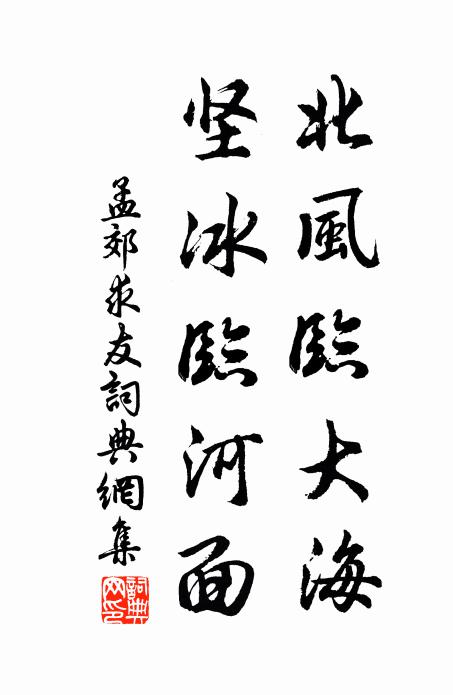 北風臨大海
坚冰臨河面
孟郊求友詞典網集
詞典网印